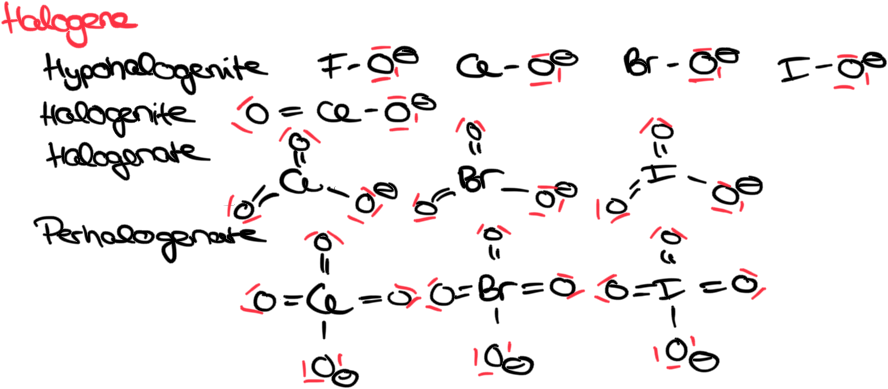 Halogene
Hypohalogenite F-O⊖ Cl-O⊖ Br-O⊖ I-O⊖
Halogenite O=Cl-O⊖
O O O
Halogenate
Cl Br I
O O⊖ O O⊖ O O⊖
Perhalogenate
O O O
O=Cl=O O=Br=O O=I=O
O⊖ O⊖ O⊖